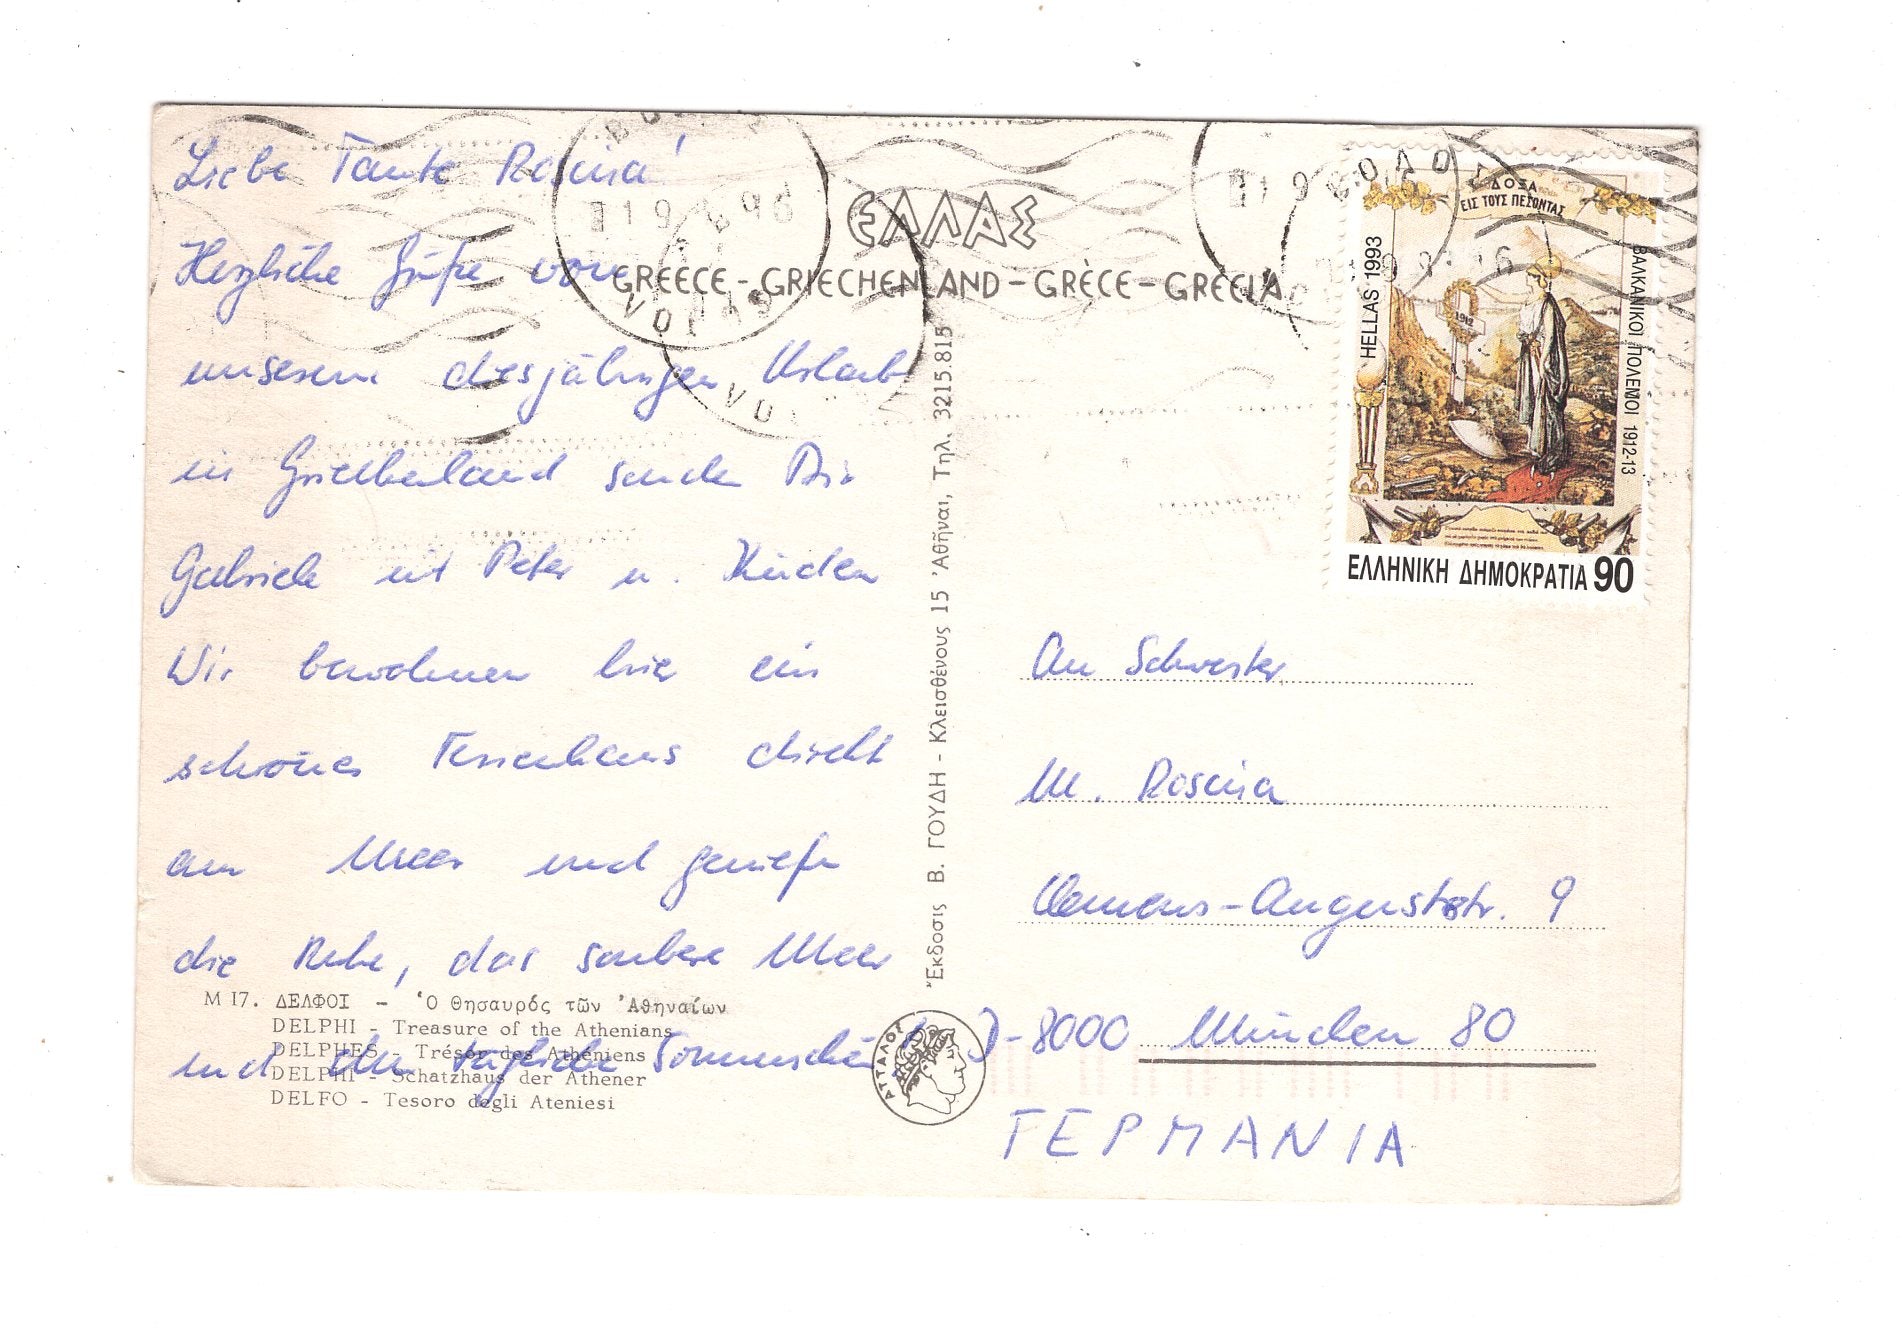 Liebe Tante Rosina!
Herzliche Grüße von
unserem diesjährigen Urlaub
in Griechenland senden Dir
Gabriele mit Peter u. Kinder
Wir bewohnen hier ein
schönes Ferienhaus direkt
am Meer und genießen
die Ruhe, das saubere Meer
und den täglichen Sonnenschein
M 17. ΔΕΛΦΟΙ - Ὁ Θησαυρός τῶν Ἀθηναίων
DELPHI - Treasure of the Athenians
DELPHES - Trésor des Athéniens
DELPHI - Schatzhaus der Athener
DELFO - Tesoro degli Ateniesi
ΕΛΛΑΣ
GREECE - GRIECHENLAND - GRÈCE - GRECIA
VOLOS
Ἔκδοσις Β. ΓΟΥΔΗ - Κλεισθένους 15 Ἀθῆναι, Τηλ. 3215.815
ΑΤΤΑΛΟΣ
ΔΟΞΑ
ΕΙΣ ΤΟΥΣ ΠΕΣΟΝΤΑΣ
HELLAS 1993
1912
ΒΑΛΚΑΝΙΚΟΙ ΠΟΛΕΜΟΙ 1912-13
ΕΛΛΗΝΙΚΗ ΔΗΜΟΚΡΑΤΙΑ 90
An Schwester
M. Rosina
Clemens-Auguststr. 9
D-8000 München 80
ΓΕΡΜΑΝΙΑ